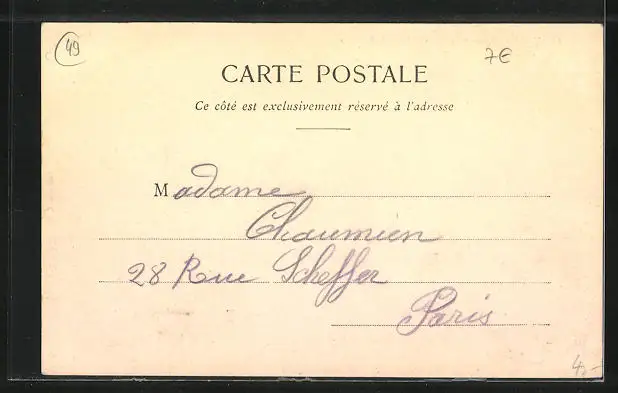 49
7€
CARTE POSTALE
Ce côté est exclusivement réservé à l'adresse
Madame
Chaumien
28 Rue Scheffer
Paris
4,-